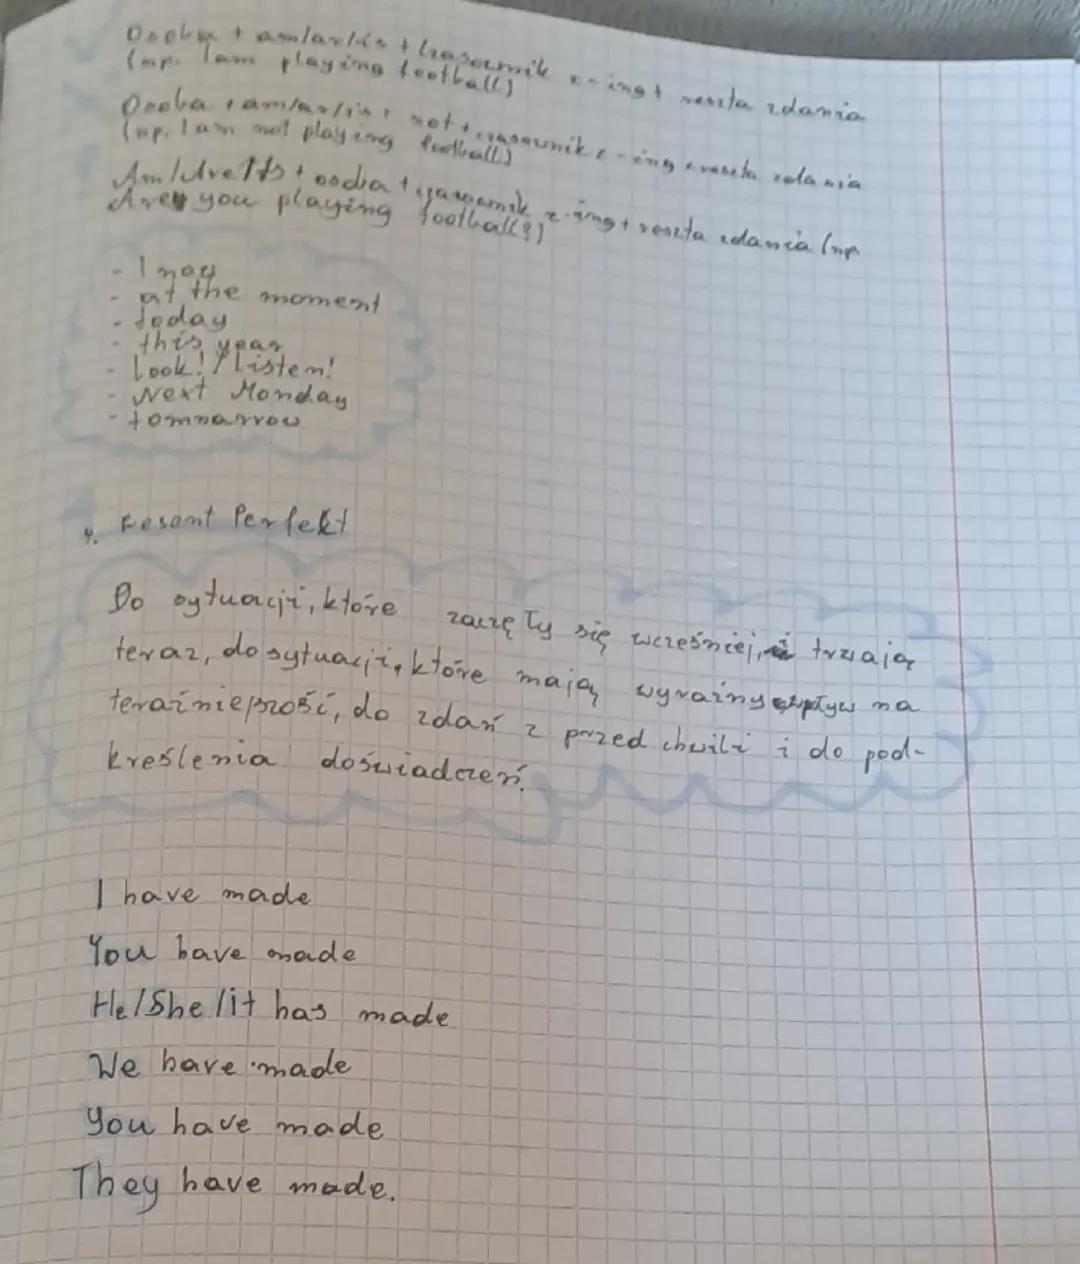 Osoba + am/are/is + czasownik z -ing + reszta zdania
(np. I am playing football)
Osoba + am/are/is + not + czasownik z -ing + reszta zdania
(np. I am not playing football)
Am/Are/Is + osoba + czasownik z -ing + reszta zdania (np.
Are you playing football?)
- at the moment
- today
- this year
- look! / listen!
- Next Monday
- tommarrow
4. Perfekt
Do sytuacji, które zaczęły się wcześniej, i trwają
teraz, do sytuacji, które mają wyraźny wpływ na
teraźniejszość, do zdań z przed chwili i do pod-
kreślenia doświadczeń.
I have made
You have made
He/She/it has made
We have made
You have made
They have made.